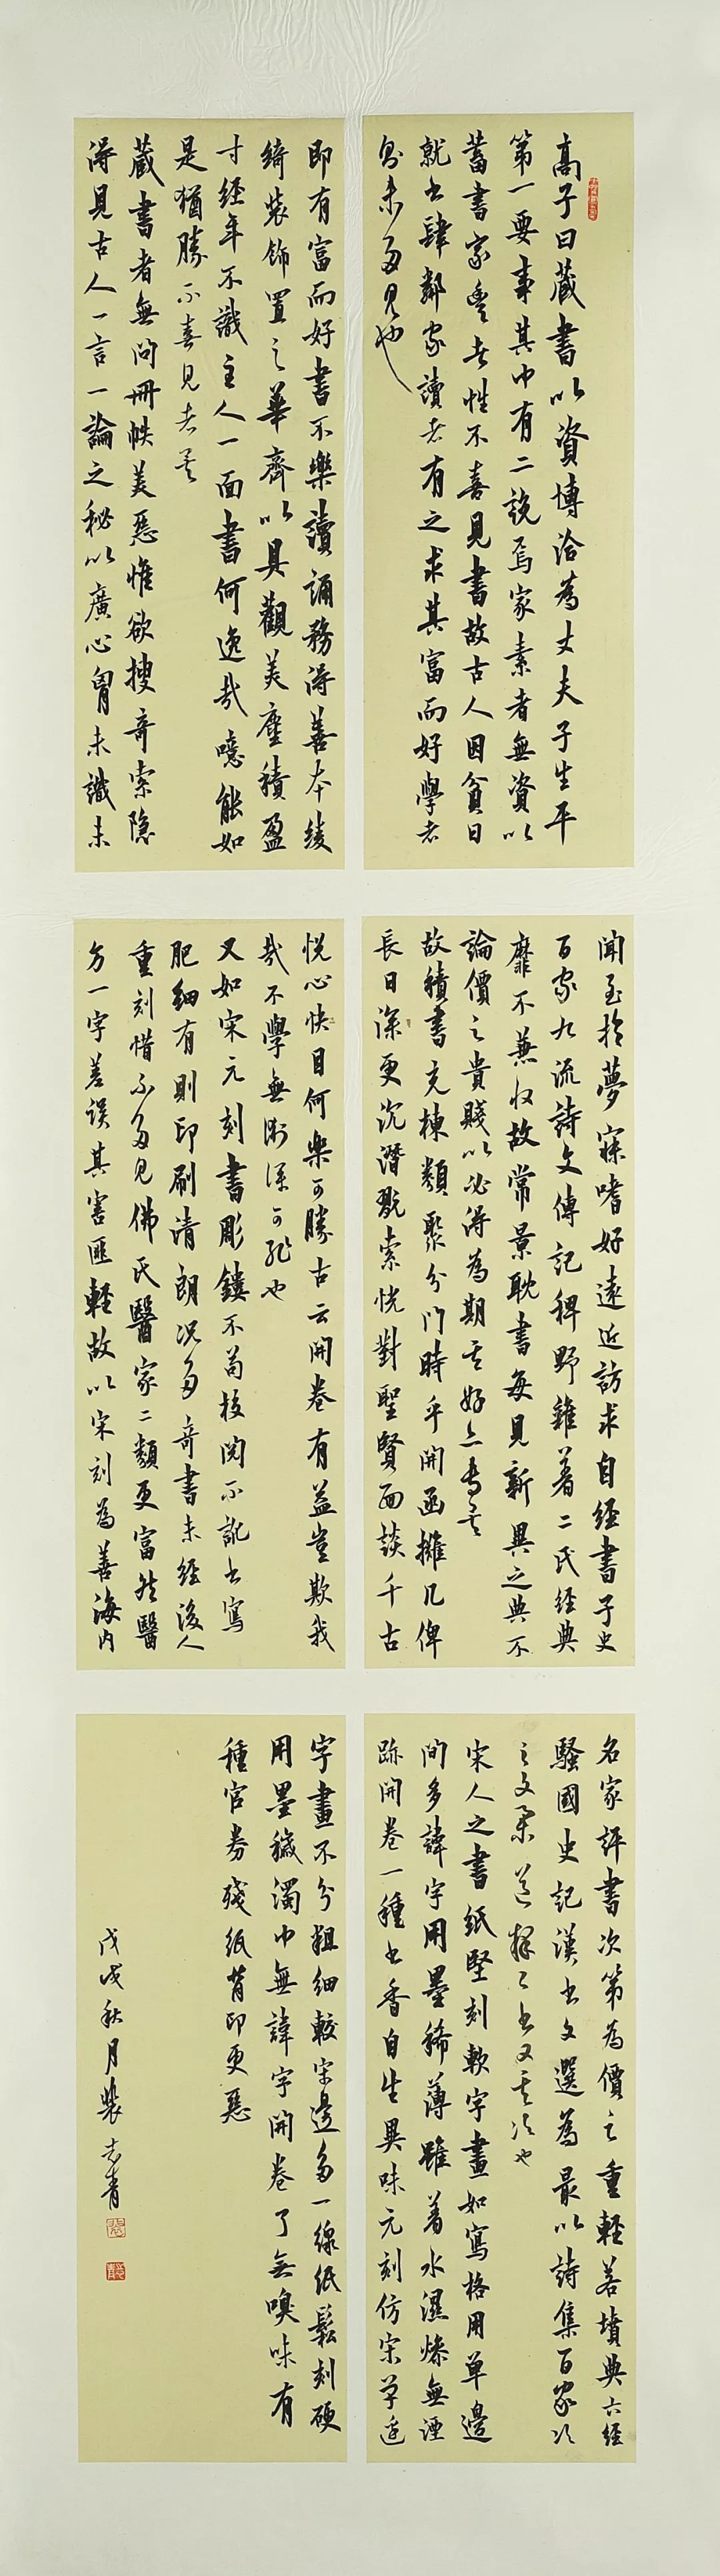 高子曰藏書以資博洽為丈夫子生平
第一要事其中有二說焉家素者無資以
蓄書家豐者性不喜見書故古人因貧日
就書肆鄰家讀者有之求其富而好學者
則未多見也
即有富而好書不樂讀誦務得善本綾
綺裝飾置之華齋以具觀美塵積盈
寸經年不識主人一面書何逸哉噫能如
是猶勝不喜見者矣
藏書者無問冊帙美惡惟欲搜奇索隱
得見古人一言一論之秘以廣心胷未識未
聞至於夢寐嗜好遠近訪求自經書子史
百家九流詩文傳記稗野雜著二氏經典
靡不兼收故常景耽書每見新異之典不
論價之貴賤以必得為期其好亦專矣
故積書充棟類聚分門時乎開函攤几俾
長日深更沉潛玩索恍對聖賢面談千古
悅心快目何樂可勝古云開卷有益豈欺我
哉不學無術深可恥也
又如宋元刻書彫鏤不苟校閱不訛書寫
肥細有則印刷清朗況多奇書未經後人
重刻惜不多見佛氏醫家二類更富然醫
方一字差誤其害匪輕故以宋刻為善海內
名家評書次第為價之重輕若墳典六經
騷國史記漢書文選為最以詩集百家次
之文集道釋二書又其次也
宋人之書紙堅刻軟字畫如寫格用單邊
間多諱字用墨稀薄雖着水濕燥無湮
跡開卷一種書香自生異味元刻仿宋單邊
字畫不分粗細較宋邊多一線紙鬆刻硬
用墨穢濁中無諱字開卷了無嗅味有
種官券殘紙背印更惡
戊戌秋月裴志青